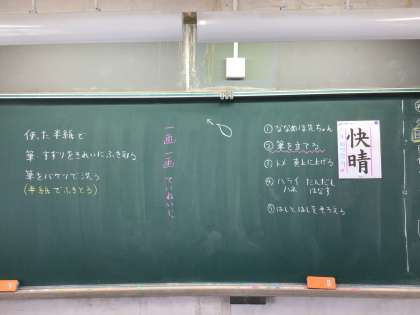 使った半紙で
筆 すずりをきれいにふき取る
筆をバケツで洗う
(半紙でふきとろう)
一画一画ていねいに
①ななめは兄ちゃん
②筆を立てる
③トメ 真上に上げる
④ハライ だんだん
ハネ はなす
⑤はしとはしをそろえる
快晴